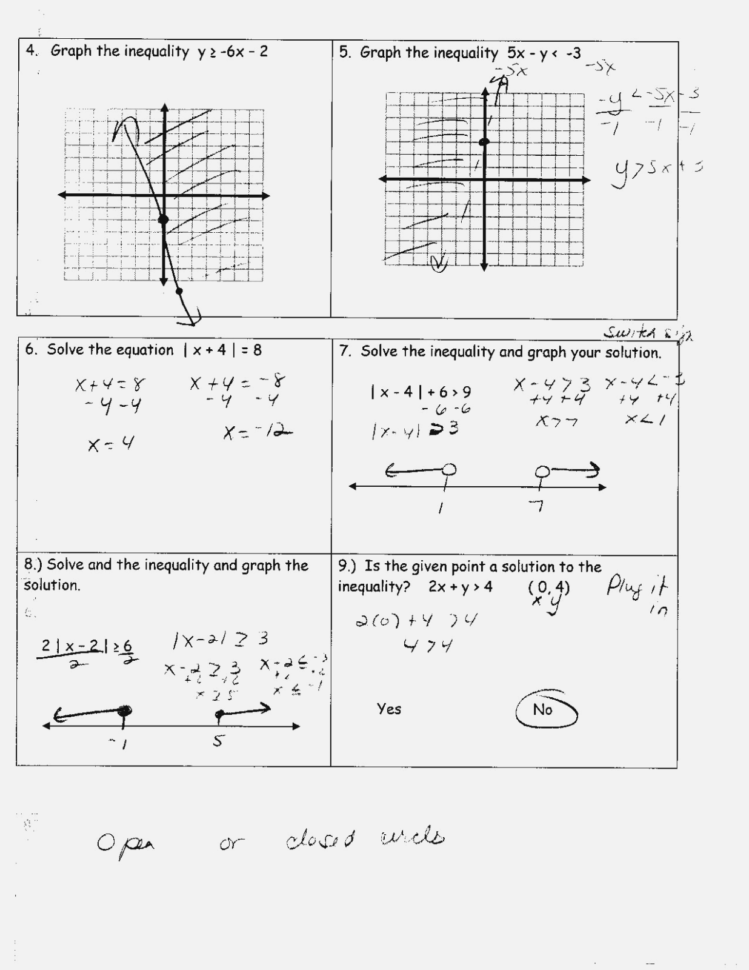 4. Graph the inequality y ≥ -6x - 2
5. Graph the inequality 5x - y < -3
-5x -5x
-y < -5x - 3
-1 -1 -1
y > 5x + 3
Switch sign
6. Solve the equation | x + 4 | = 8
x + 4 = 8 x + 4 = -8
- 4 - 4 - 4 - 4
x = 4 x = -12
7. Solve the inequality and graph your solution.
| x - 4 | + 6 > 9
- 6 - 6
|x - 4| > 3
x - 4 > 3 x - 4 < -3
+4 +4 +4 +4
x > 7 x < 1
1 7
8.) Solve and the inequality and graph the
solution.
2 | x - 2 | ≥ 6
2 2
|x - 2| ≥ 3
x - 2 ≥ 3 x - 2 ≤ -3
+2 +2 +2 +2
x ≥ 5 x ≤ -1
-1 5
9.) Is the given point a solution to the
inequality? 2x + y > 4 (0, 4)
x y
Plug it
in
2(0) + 4 > 4
4 > 4
Yes No
Open or closed circls